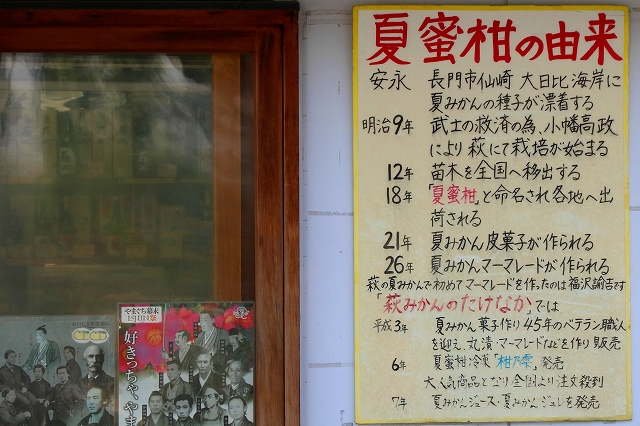 夏蜜柑の由来
安永 長門市仙崎 大日比海岸に
夏みかんの種子が漂着する
明治9年 武士の救済の為、小幡高政
により萩にて栽培が始まる
12年 苗木を全国へ移出する
18年 「夏蜜柑」と命名され各地へ出
荷される
21年 夏みかん皮菓子が作られる
26年 夏みかんマーマレードが作られる
萩の夏みかんで初めてマーマレードを作ったのは福沢諭吉です
「萩みかんのたけなか」では
平成3年 夏みかん菓子作り45年のベテラン職人
を迎え、丸漬・マーマレードなどを作り販売
6年 夏蜜柑冷菓「柑乃雫」発売
大人気商品となり全国より注文殺到
7年 夏みかんジュース・夏みかんジュレを発売
やまぐち幕末
ISHIN祭
好きっちゃ、やま